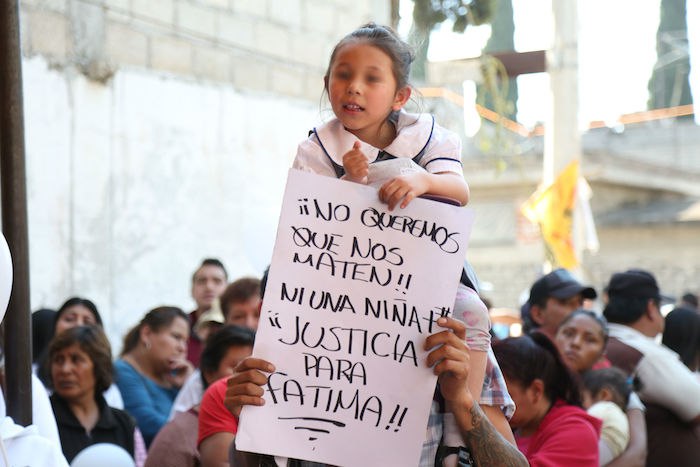 ¡¡NO QUEREMOS
QUE NOS
MATEN!!
NI UNA NIÑA+!!
¡¡JUSTICIA
PARA
FATIMA!!